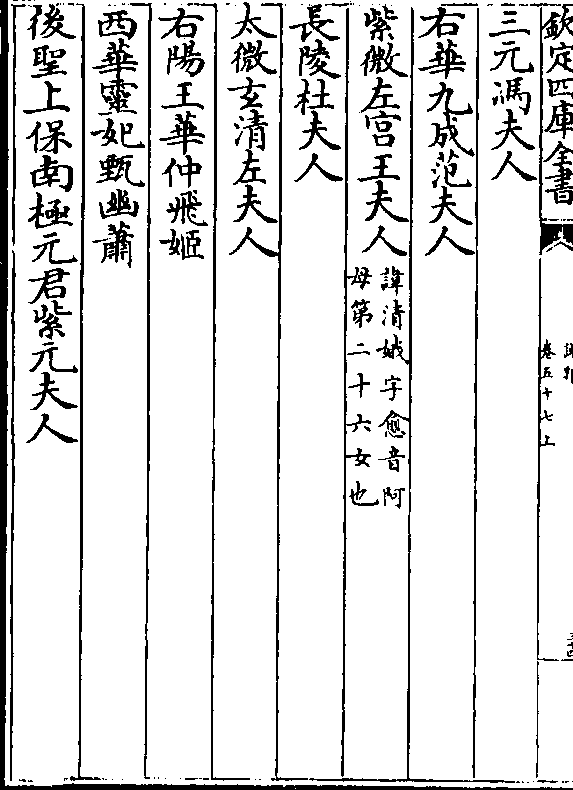 欽定四庫全書
卷五十七上
三元馮夫人
右華九成范夫人
紫微左宫王夫人諱清娥字愈音阿
母第二十六女也
長陵杜夫人
太微玄清左夫人
右陽王華仲飛姬
西華靈妃甄幽蕭
後聖上保南極元君紫元夫人